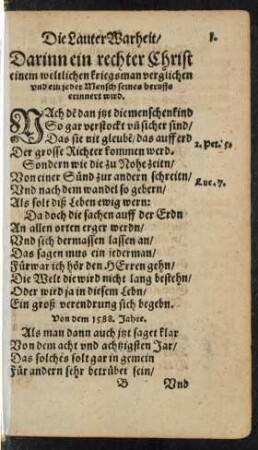 Die Lauter Warheit/
1.
Darinn ein rechter Christ
einem weltlichen kriegsman verglichen
und ein jeder Mensch seines beruffs
erinnert wird.
NAch dē dan jtzt die menschenkind
So gar verstockt uñ sicher sind/
Das sie nit gleubē/ das auff erd
2. Pet. 3.
Der grosse Richter kommen werd.
Sondern wie die zu Nohe zeiten/
Von einer Sünd zur andern schreitn/
Luc. 7.
Vnd nach dem wandel so gebern/
Als solt diß Leben ewig wern:
Da doch die sachen auff der Erdn
An allen orten erger werdn/
Vnd sich dermassen lassen an/
Das sagen mus ein jederman/
Fürwar ich hör den HErren gehn/
Die Welt die wird nicht lang bestehn/
Oder wird ja in diesem Lebn/
Ein groß verendrung sich begebn.
Von dem 1588. Jahre.
Als man dann auch jtzt saget klar
Von dem acht vnd achtzigsten Jar/
Das solchs solt gar in gemein
Für andern sehr betrübet sein/
B
Vnd